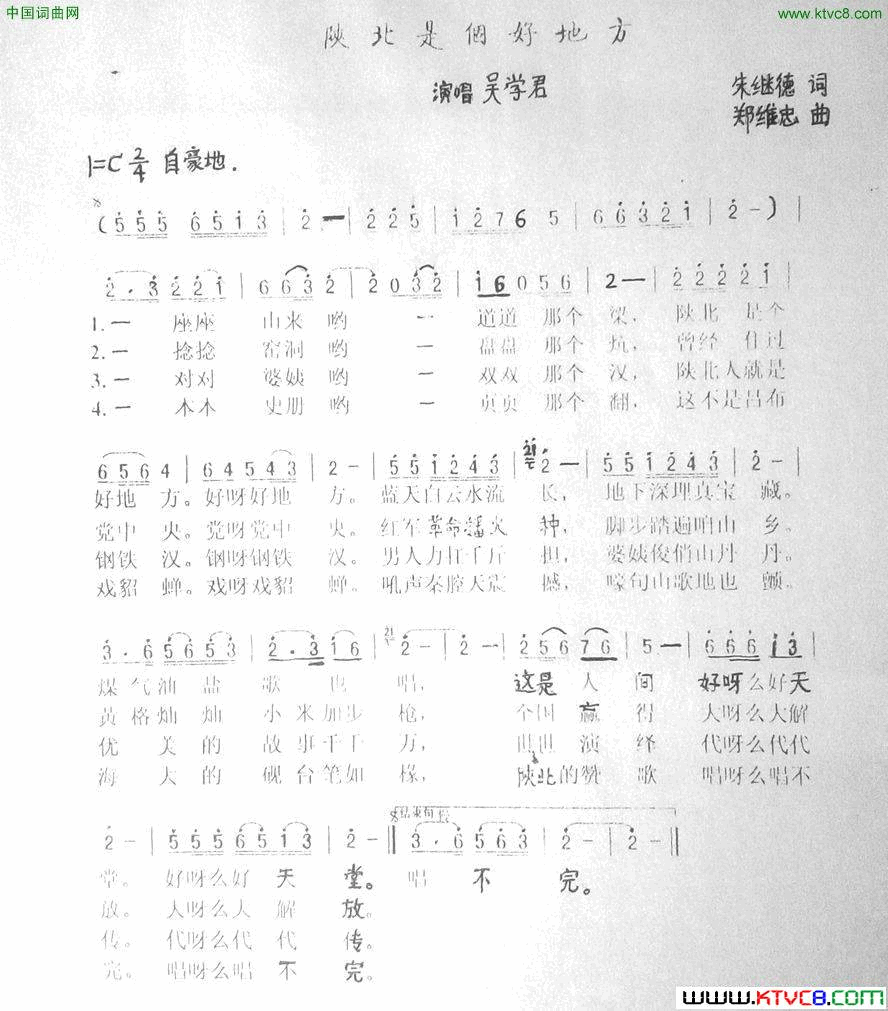 中国词曲网
www.ktvc8.com
陕北是個好地方
演唱 吴学君
朱继德 词
郑维忠 曲
1=C 2/4 自豪地.
( 5 5 5 6 5 1 3 | 2 — | 2 2 5 | 1 2 7 6 5 | 6 6 3 2 1 | 2 — ) |
2 . 3 2 2 1 | 6 6 3 2 | 2 0 3 2 | 1 6 0 5 6 | 2 — | 2 2 2 2 1 |
1. 一 座座 山来 哟 一 道道 那个 梁, 陕北 是个
2. 一 捻捻 窑洞 哟 一 盘盘 那个 炕, 曾经 住过
3. 一 对对 婆姨 哟 一 双双 那个 汉, 陕北人就是
4. 一 本本 史册 哟 一 页页 那个 翻, 这不是吕布
6 5 6 4 | 6 4 5 4 3 | 2 - | 5 5 1 2 4 3 | 21 2 — | 5 5 1 2 4 3 | 2 - |
好地 方。好呀好地 方。蓝天白云水流 长, 地下深埋真宝 藏。
党中 央。党呀党中 央。红军革命播火 种, 脚步踏遍咱山 乡。
钢铁 汉。钢呀钢铁 汉。男人力扛千斤 担, 婆姨俊俏山丹 丹。
戏貂 蝉。戏呀戏貂 蝉。吼声秦腔天震 撼, 嚎句山歌地也 颤。
3 . 6 5 6 5 3 | 2 . 3 1 6 | 21 2 - | 2 - | 2 5 6 7 6 | 5 — | 6 6 6 1 3 |
煤气油盐 歌 也 唱, 这是 人 间 好呀么好天
黄格灿灿 小米加步 枪, 全国 赢 得 大呀么大解
优 美 的 故事千千 万, 世世 演 绎 代呀么代代
海 大 的 砚台笔如 椽, 陕北的赞 歌 唱呀么唱不
结束句
2 - | 5 5 5 6 5 1 3 | 2 - || 3 . 6 5 6 3 | 2 - | 2 - ||
堂。 好呀么好 天 堂。 唱 不 完。
放。 大呀么大 解 放。
传。 代呀么代 代 传。
完。 唱呀么唱 不 完。
www.KTVC8.COM